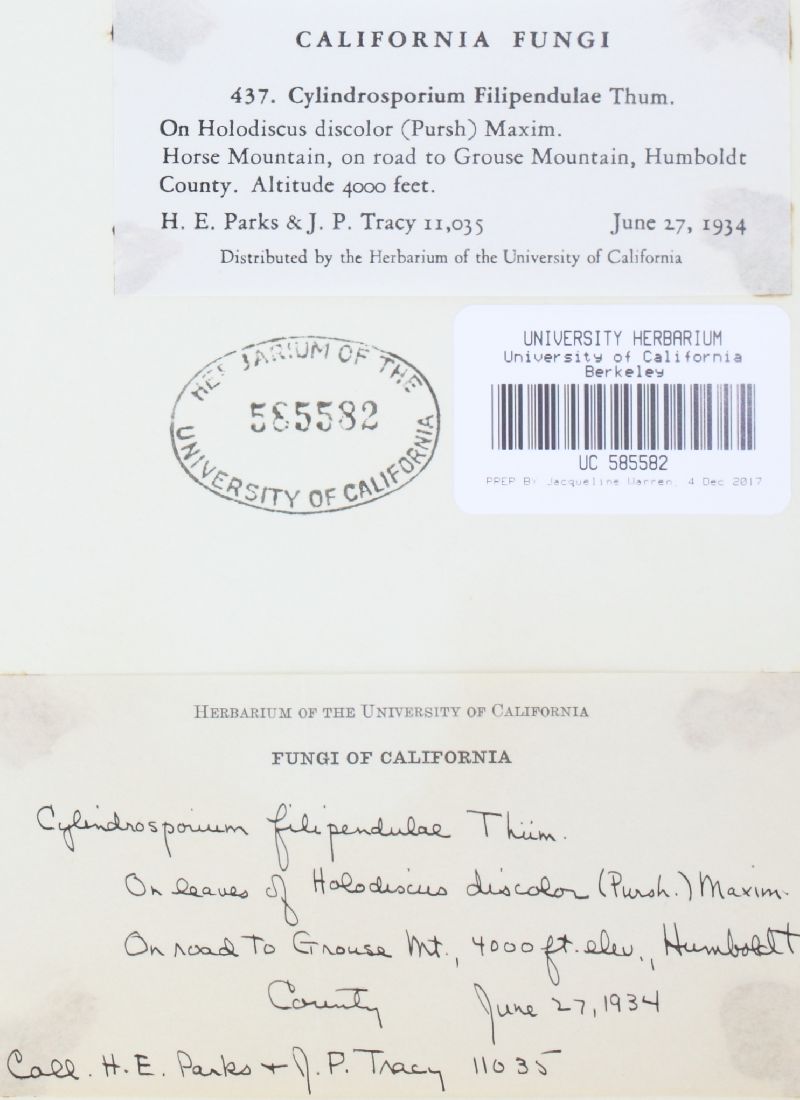 CALIFORNIA FUNGI
437. Cylindrosporium Filipendulae Thum.
On Holodiscus discolor (Pursh) Maxim.
Horse Mountain, on road to Grouse Mountain, Humboldt
County. Altitude 4000 feet.
H. E. Parks & J. P. Tracy 11,035 June 27, 1934
Distributed by the Herbarium of the University of California
HERBARIUM OF THE
585582
UNIVERSITY OF CALIFORNIA
UNIVERSITY HERBARIUM
University of California
Berkeley
UC 585582
PREP BY Jacqueline Warren, 4 Dec 2017
HERBARIUM OF THE UNIVERSITY OF CALIFORNIA
FUNGI OF CALIFORNIA
Cylindrosporium filipendulae Thüm.
On leaves of Holodiscus discolor (Pursh.) Maxim.
On road to Grouse Mt., 4000 ft. elev., Humboldt
County June 27, 1934
Coll. H. E. Parks + J. P. Tracy 11035